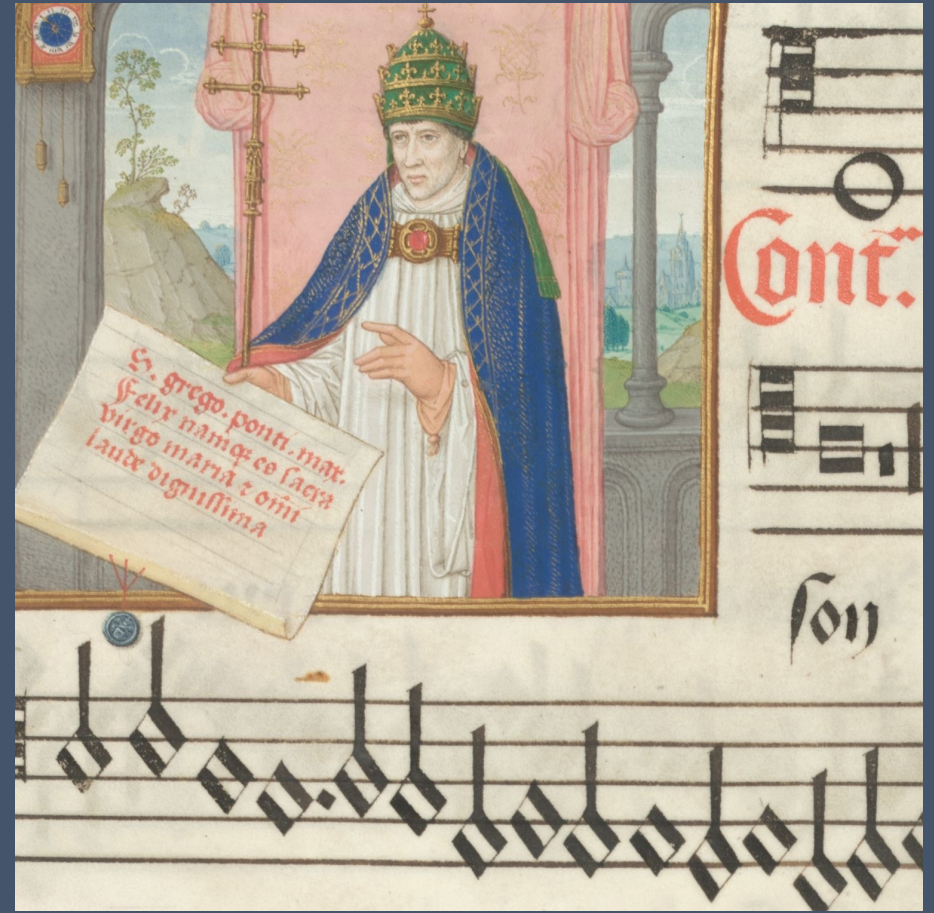 S. grego. ponti. max.
Felix namqꝫ es sacra
virgo maria ⁊ om̄i
laude dignissima
Cont̄.
son